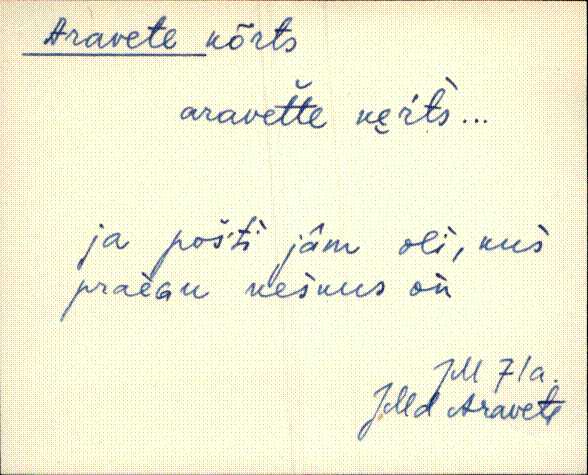 Aravete kõrts
aravet̆te kęr̀t̀s...
ja poš́ti jâm oli, kus
praèGu keskus on
JM 71a.
JMd Aravete